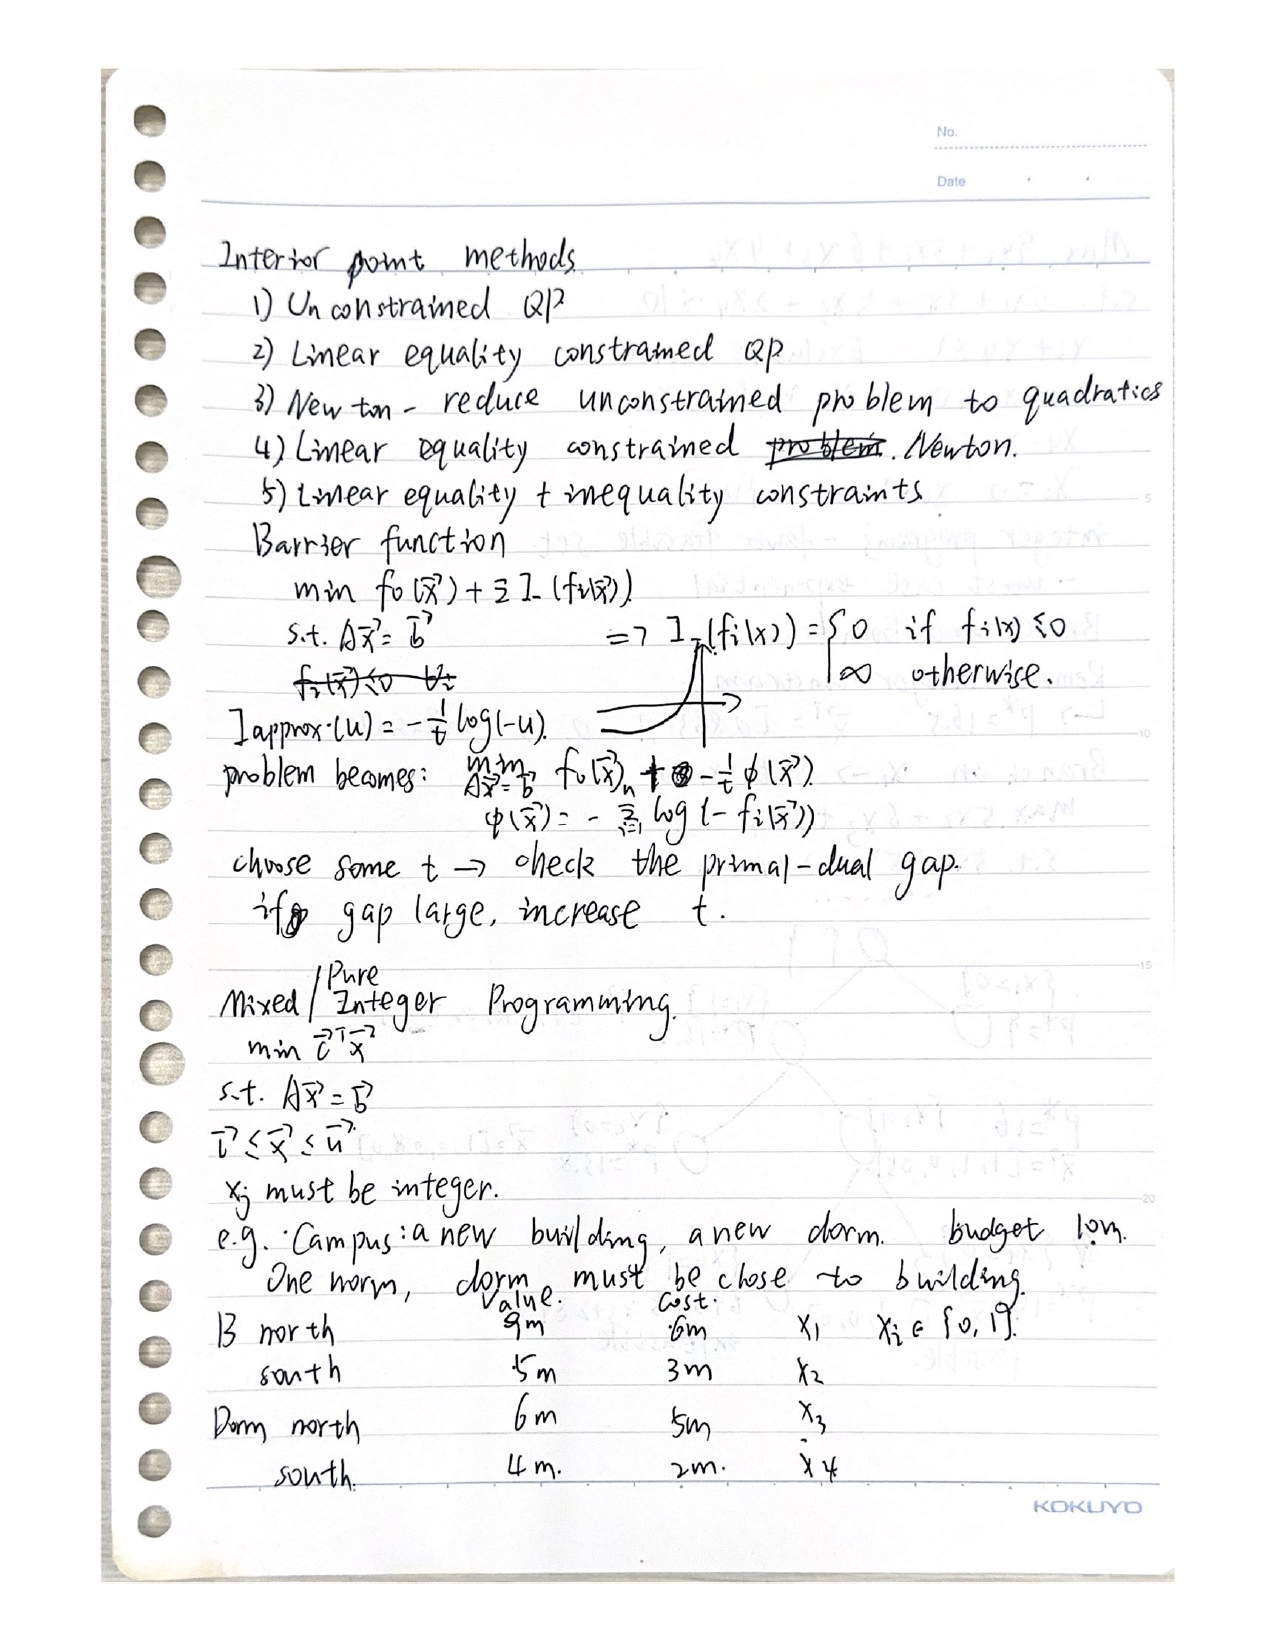 No.
Date
Interior point methods
1) Unconstrained QP
2) Linear equality constrained QP
3) Newton - reduce unconstrained problem to quadratics
4) Linear equality constrained problem. Newton.
5) Linear equality + inequality constraints
Barrier function
min f₀(x⃗) + Σ I₋(fᵢ(x⃗))
s.t. Ax⃗ = b⃗ => I₋(fᵢ(x)) = { 0 if fᵢ(x) ≤ 0
fᵢ(x⃗) ≤ 0 ∀i ∞ otherwise.
I approx.(u) = -1/t log(-u).
problem becomes: min Ax⃗=b⃗ f₀(x⃗) + - 1/t φ(x⃗).
φ(x⃗) = - Σ i=1 n log(-fᵢ(x⃗))
choose some t → check the primal-dual gap.
if gap large, increase t.
Mixed / Pure Integer Programming.
min c⃗ᵀx⃗
s.t. Ax⃗ = b⃗
l⃗ ≤ x⃗ ≤ u⃗
xⱼ must be integer.
e.g. Campus: a new building, a new dorm. budget 10m.
One norm, dorm must be close to building.
Value. Cost.
B north 9m 6m x₁ xᵢ ∈ {0, 1}.
south 5m 3m x₂
Dorm north 6m 5m x₃
south. 4m. 2m. x₄
KOKUYO